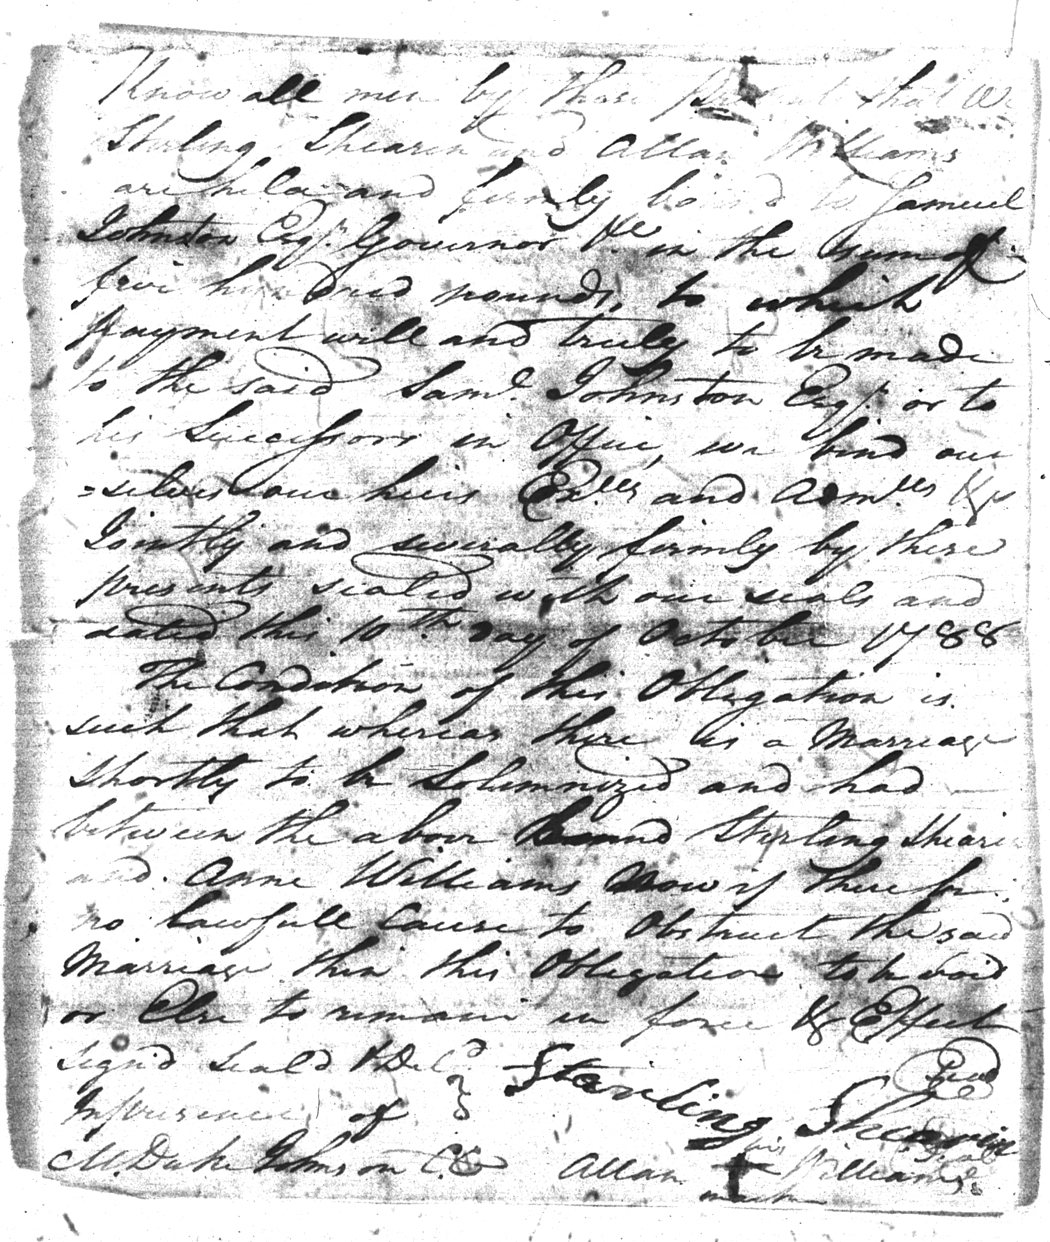 Know all men by these presents that We
Sterling Shearin and Allan Williams
are held and firmly bound to Samuel
Johnston Esqr. Governor &c in the sum of
five hundred pounds, to which
payment will and truly to be made
to the said Saml. Johnston Esqr. or to
his Successors in Office, we bind our
=selves our heirs Exers and Admrs &c
Jointly and severally firmly by these
presents sealed with our seals and
dated this 10th day of October 1788
The Condition of this Obligation is
such that whereas there is a Marriage
Shortly to be Solemnized and had
between the above bound Sterling Shearin
and Anne Williams Now if there be
no lawfull Cause to Obstruct the said
Marriage then this Obligation to be void
or Else to remain in force & Effect
Sign'd Seal'd & Deld Sterling Shearin Seal
In presence of
M. Duke Johnson C.C. Allan his + mark Williams Seal